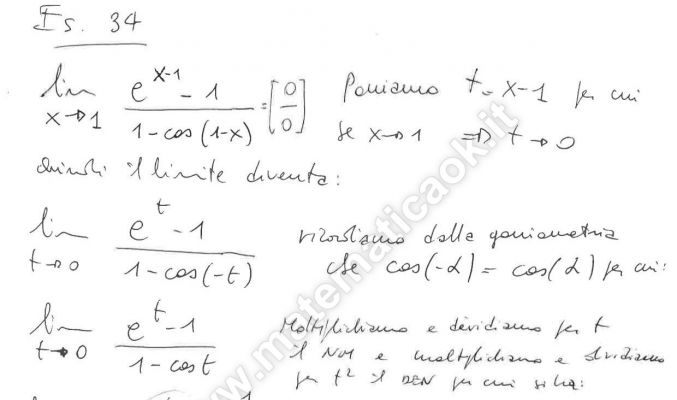 Es. 34
lim x→1 (e^(x-1) - 1)/(1 - cos(1-x)) = [0/0] Poniamo t = x-1 per cui
se x→1 ⇒ t→0
Quindi il limite diventa:
lim t→0 (e^t - 1)/(1 - cos(-t)) ricordiamo dalla goniometria
che cos(-α) = cos(α) per cui:
lim t→0 (e^t - 1)/(1 - cos t) Moltiplichiamo e dividiamo per t
il NUM e moltiplichiamo e dividiamo
per t² il DEN per cui si ha:
www.matematicaok.it